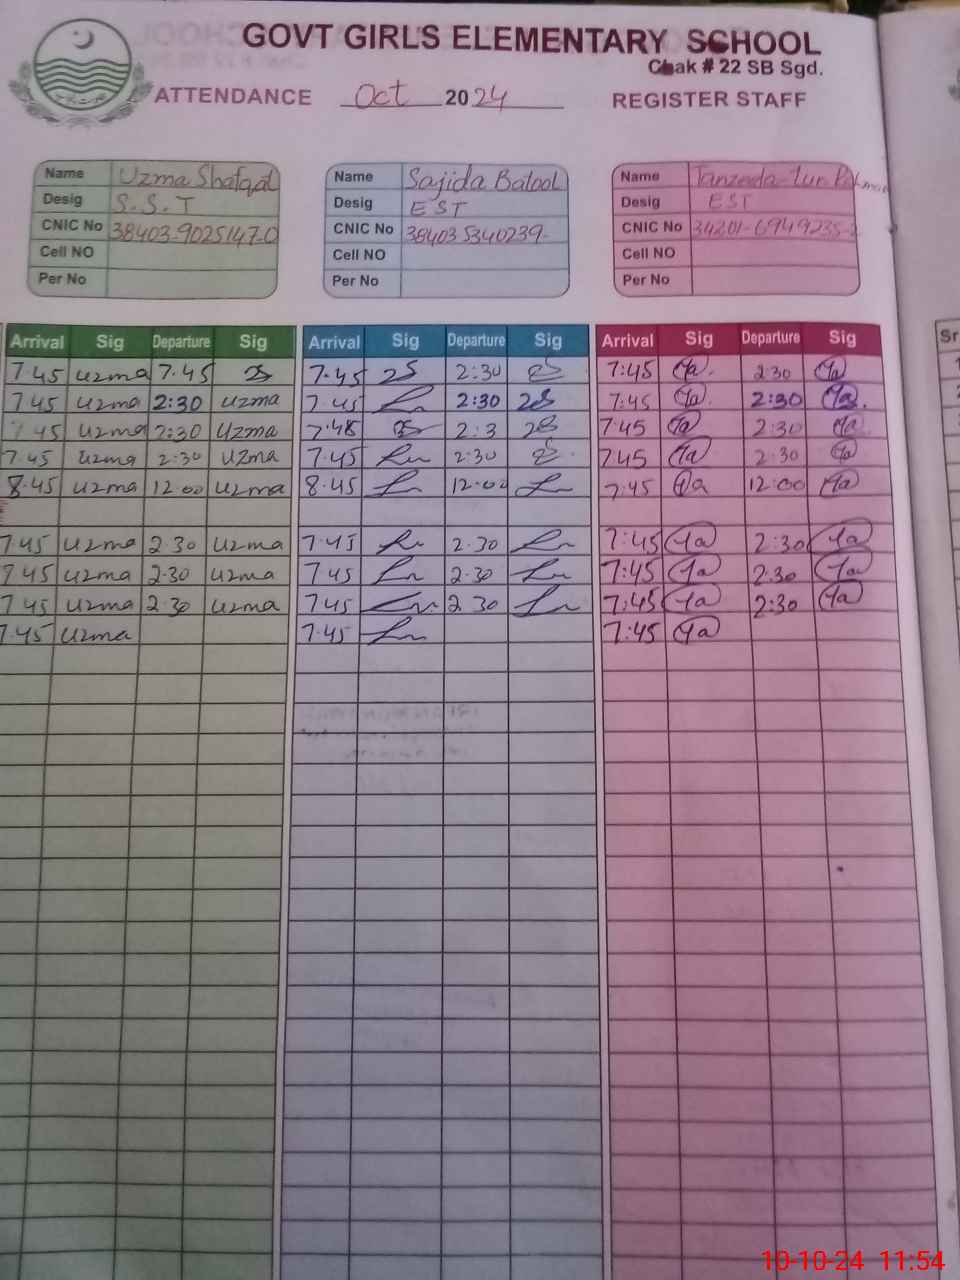 GOVT GIRLS ELEMENTARY SCHOOL
Chak # 22 SB Sgd.
ATTENDANCE Oct 2024 REGISTER STAFF
Name Uzma Shafqat Name Sajida Batool Name
Desig S.S.T Desig EST Desig EST
CNIC No 38403-9025147-0 CNIC No 384035340239- CNIC No 34201-6949235-2
Cell NO Cell NO Cell NO
Per No Per No Per No
Arrival Sig Departure Sig Arrival Sig Departure Sig Arrival Sig Departure Sig Sr
7.45 uzma 7.45 7.45 2:30 7:45 2:30
7.45 uzma 2:30 uzma 7.45 2:30 7:45 2:30
7.45 uzma 2:30 uzma 7.45 2:3 7:45 2:30
7.45 uzma 2:30 uzma 7.45 2:30 7:45 2:30
8.45 uzma 12.00 uzma 8.45 12.00 7:45 12:00
7.45 uzma 2.30 uzma 7.45 2.30 7:45 2:30
7.45 uzma 2.30 uzma 7.45 2.30 7:45 2:30
7.45 uzma 2.30 uzma 7.45 2.30 7:45 2:30
7.45 uzma 7.45 7:45
10-10-24 11:54